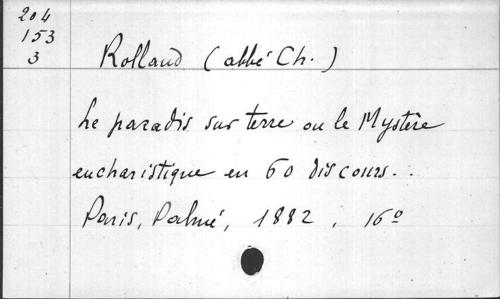 204
153
3
Rolland (abbé Ch.)
Le paradis sur terre ou le Mystère
eucharistique en 60 discours..
Paris, Palmé, 1882, 16º